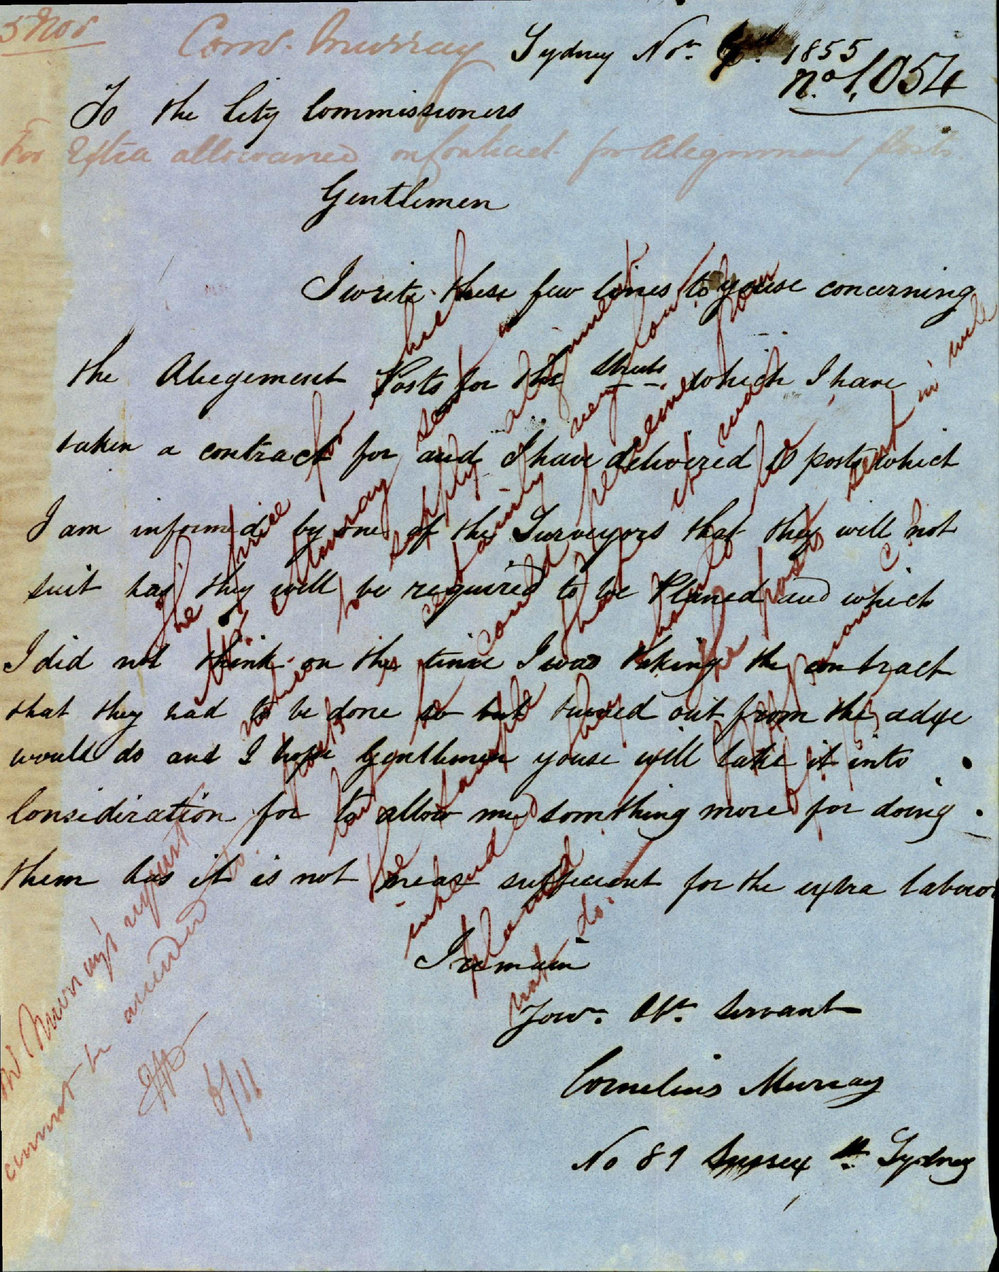 5 Nov
Corns. Murray
Sydney Nov. 1855
No. 1,054
To the City Commissioners
For Extra allowance on Contract for Alignment Posts
Gentlemen
I write these few lines to youse concerning
the Aliegement Posts for the Streets which I have
taken a contract for and I have delivered posts which
I am informed by one of the Surveyors that they will not
suit has they will be required to be Planed and which
I did not think on the time I was tking the contract
that they had to be done so but turned out from the adge
would do and I hope Gentlemen youse will take it into
Considiration for to allow me something more for doing
them has it is not near sufficient for the extra labour
I remain
Your Obt. Servant
Cornelius Murray
No 89 Sussex St. Sydney
The price for which
Mr. Murray sent in
to supply alignment
posts is fairly very low
be could perceive from
the sample that it was
intended they should be
planed the posts sent in will
not do.
Mr Murray's request
cannot be acceded
to.
6/11